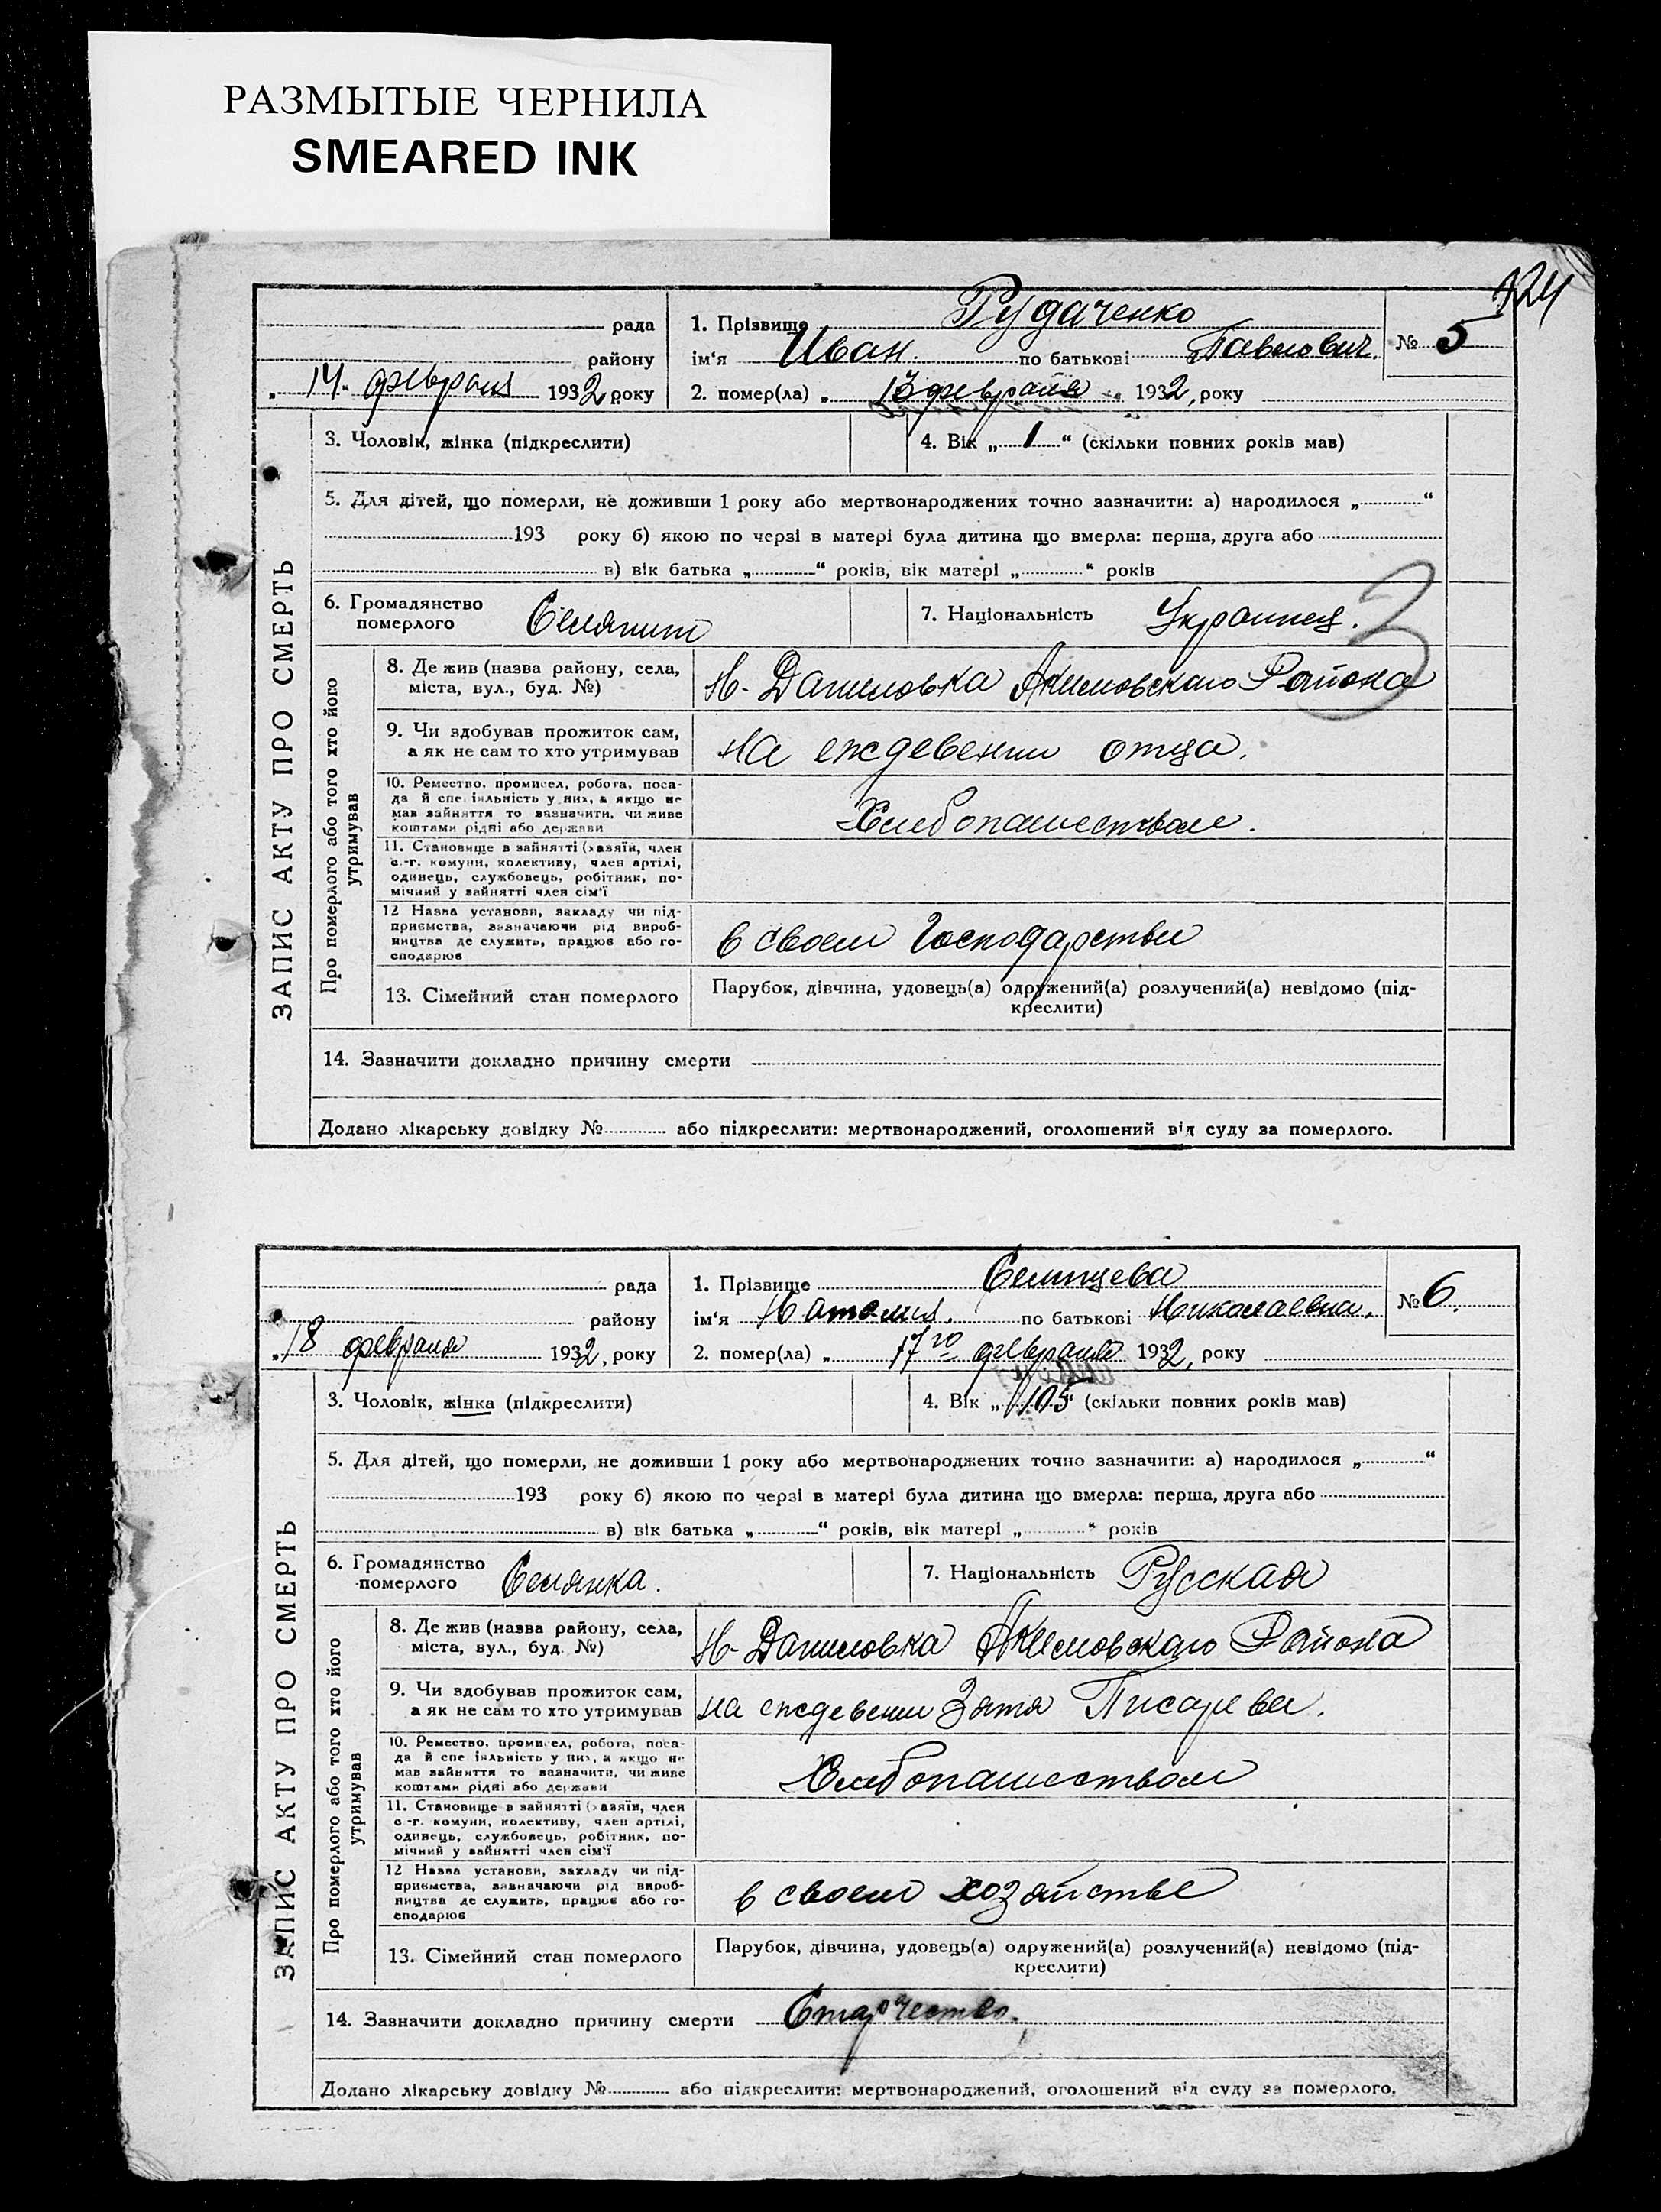 РАЗМЫТЫЕ ЧЕРНИЛА
SMEARED INK
124
рада
району
„ 14 " февраля 1932 року
1. Прізвище Рудаченко
ім'я Иван. по батькові Павлович.
2. помер(ла) „ 13 февраля 1932, року
№ 5
ЗАПИС АКТУ ПРО СМЕРТЬ
3. Чоловік, жінка (підкреслити)
4. Вік „ 1 “ (скільки повних років мав)
5. Для дітей, що померли, не доживши 1 року або мертвонароджених точно зазначити: а) народилося „ “
193 року б) якою по черзі в матері була дитина що вмерла: перша, друга або
в) вік батька „ “ років, вік матері „ “ років
6. Громадянство
померлого
Селянин
7. Національність Украинец.
3
Про померлого або того хто його
утримував
8. Де жив (назва району, села,
міста, вул., буд. №)
Н-Даниловка Акимовского Района
9. Чи здобував прожиток сам,
а як не сам то хто утримував
на еждевении отца.
10. Ремество, промисел, робота, поса-
да й спеціяльність у них, а якщо не
мав зайняття то зазначити, чи живе
коштами рідні або держави
Хлебопашеством.
11. Становище в зайнятті (хазяїн, член
с.-г. комуни, колективу, член артілі,
одинець, службовець, робітник, по-
мічний у зайнятті член сім'ї
12 Назва установи, закладу чи під-
приємства, зазначаючи рід вироб-
ництва де служить, працює або го-
сподарює
в своем Господарстве
13. Сімейний стан померлого
Парубок, дівчина, удовець(а) одружений(а) розлучений(а) невідомо (під-
креслити)
14. Зазначити докладно причину смерти
Додано лікарську довідку № або підкреслити: мертвонароджений, оголошений від суду за померлого.
рада
району
„ 18 февраля 1932, року
1. Прізвище Селищева
ім'я Наталия. по батькові Николаевна.
2. помер(ла) „ 17го февраля 1932, року
№ 6.
ЗАПИС АКТУ ПРО СМЕРТЬ
3. Чоловік, жінка (підкреслити)
4. Вік „ 105 “ (скільки повних років мав)
5. Для дітей, що померли, не доживши 1 року або мертвонароджених точно зазначити: а) народилося „ “
193 року б) якою по черзі в матері була дитина що вмерла: перша, друга або
в) вік батька „ “ років, вік матері „ “ років
6. Громадянство
померлого
Селянка.
7. Національність Русская
Про померлого або того хто його
утримував
8. Де жив (назва району, села,
міста, вул., буд. №)
Н-Даниловка Акимовского Района
9. Чи здобував прожиток сам,
а як не сам то хто утримував
на еждевении Зятя Писарева.
10. Ремество, промисел, робота, поса-
да й спеціяльність у них, а якщо не
мав зайняття то зазначити, чи живе
коштами рідні або держави
Хлебопашеством
11. Становище в зайнятті (хазяїн, член
с.-г. комуни, колективу, член артілі,
одинець, службовець, робітник, по-
мічний у зайнятті член сім'ї
12 Назва установи, закладу чи під-
приємства, зазначаючи рід вироб-
ництва де служить, працює або го-
сподарює
в своем хозяйстве
13. Сімейний стан померлого
Парубок, дівчина, удовець(а) одружений(а) розлучений(а) невідомо (під-
креслити)
14. Зазначити докладно причину смерти Старчество.
Додано лікарську довідку № або підкреслити: мертвонароджений, оголошений від суду за померлого.